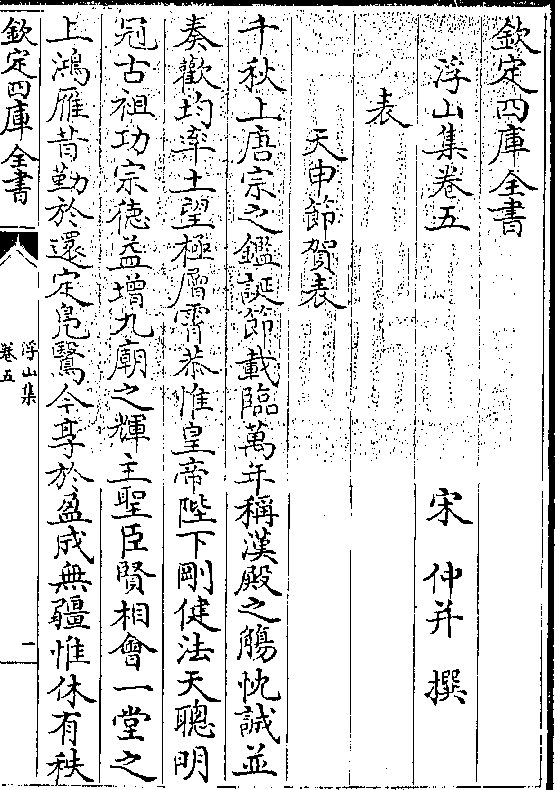 欽定四庫全書
浮山集卷五
宋 仲并 撰
表
天申節賀表
千秋上唐宗之鑑誕節載臨萬年稱漢殿之觴忱誠並
奏歡均率土望極層霄恭惟皇帝陛下剛健法天聰明
冠古祖功宗德益增九廟之輝主聖臣賢相會一堂之
上鴻雁昔勤於還定鳬鷖今享於盈成無疆惟休有秩
欽定四庫全書
浮山集
卷五
一